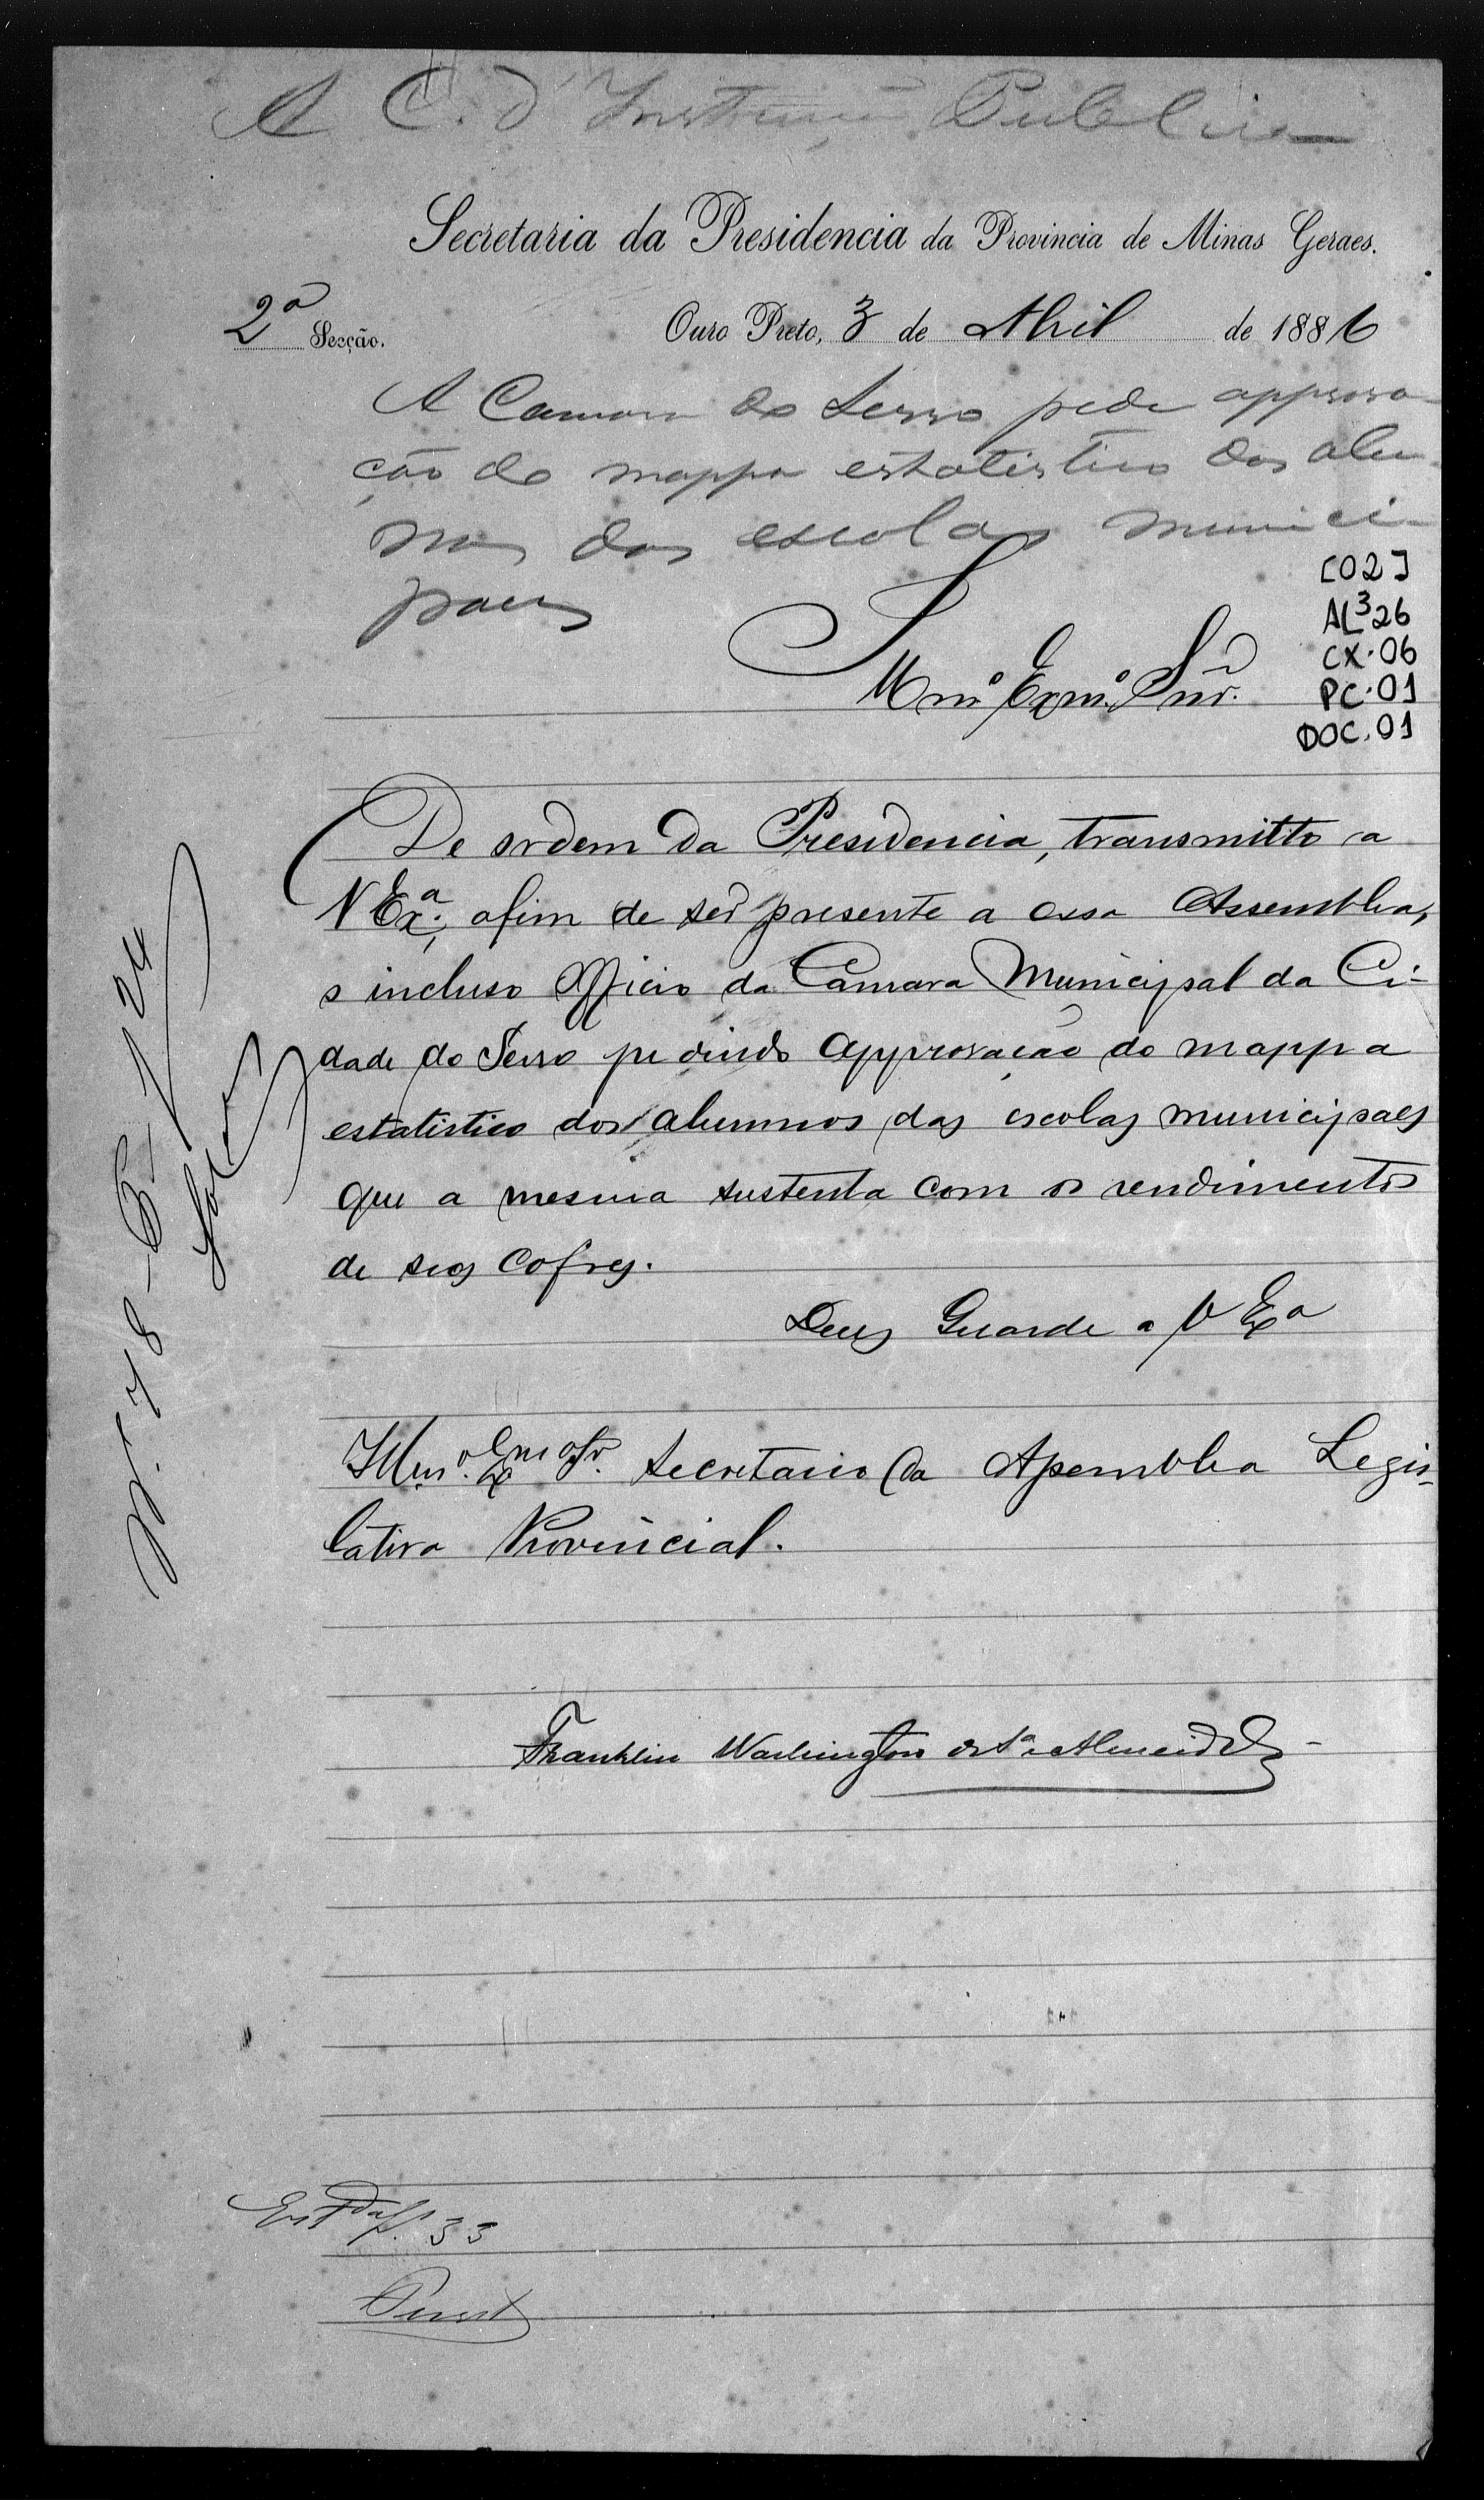 A C. d' Instrucção Publica
Secretaria da Presidencia da Provincia de Minas Geraes.
2ª Secção.
Ouro Preto, 3 de Abril de 1886
A Camara do Serro pede approva-
ção do mappa estatistico dos alu-
nos das escolas munici-
paes
[02]
AL³26
CX.06
PC.01
DOC.01
Illmº Exmº Snr.
De ordem da Presidencia, transmitto a
V Exª, afim de ser presente a essa Assemblea,
o incluso Officio da Camara Municipal da Ci-
dade do Serro pedindo approvação do mappa
estatistico dos alumnos das escolas municipaes
que a mesma sustenta com os rendimentos
de seos cofres.
Deus Guarde a V Exª
Illmº. Exmº Sr. Secretario da Assemblea Legis-
lativa Provincial.
Franklin Washington da Sª e Almeida
33